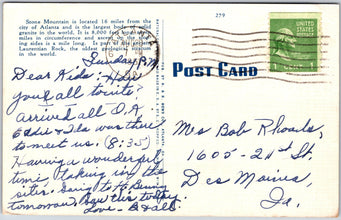 Stone Mountain is located 16 miles from the
city of Atlanta and is the largest body of solid
granite in the world. It is 8,000 feet
miles in circumference and
ing sides is a mile long. Is part of the
Laurentian Rock, the oldest geological
in the world.
279
UNITED STATES POSTAGE
1 CENT 1
POST CARD
Sunday P.M.
Dear Kids: How
you all to-nite?
Arrived all O.K.
Eddie + Ila was there
to meet us. (8:35)
Having a wonderful
time taking in the
sites. Going to Ft. Benning
tomorrow. Saw this today
Love - B & all.
Mrs Bob Rhoads,
1605 - 21st St.
Des Moines,
Ia.